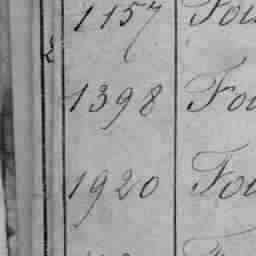 1157 Fou
2
1398 Fou
1920 Fou